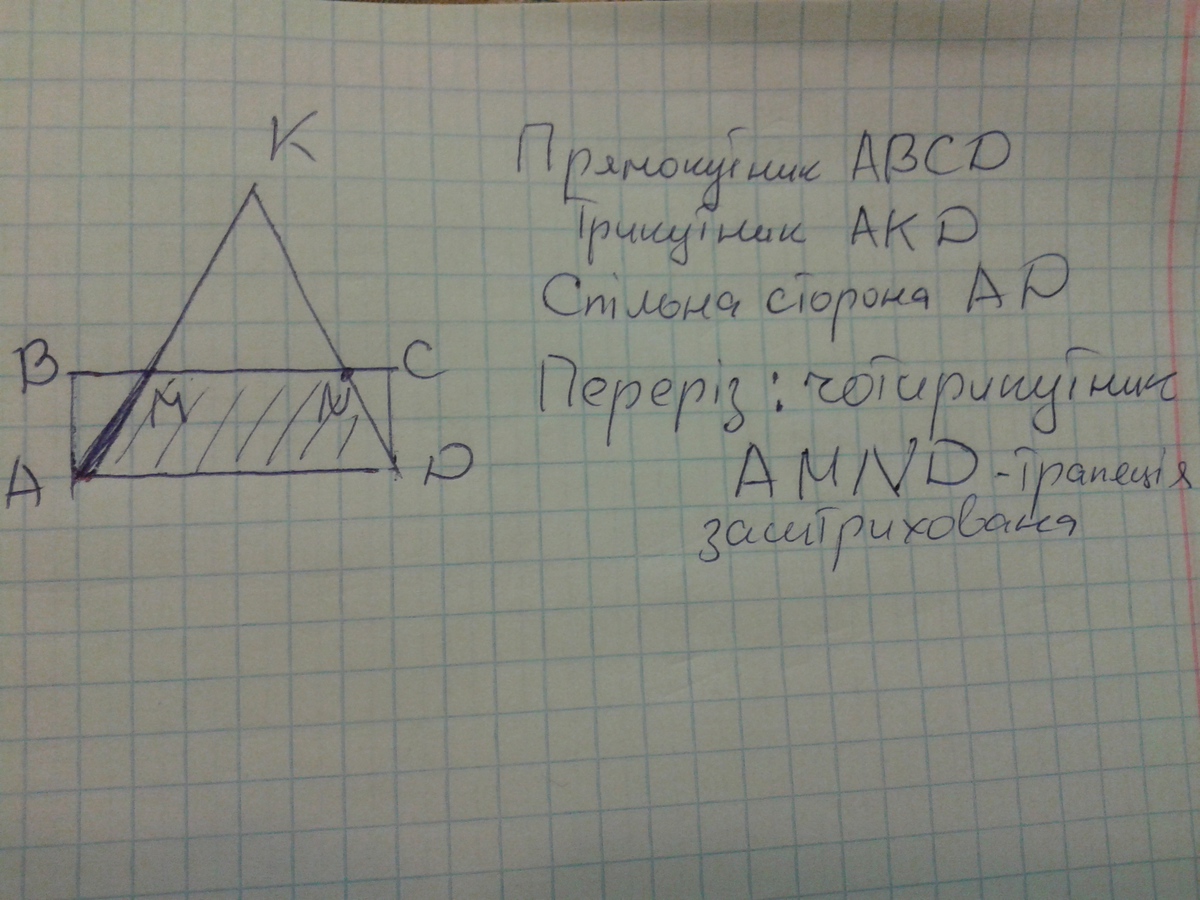 K
Прямокутник ABCD
Трикутник AKD
Спільна сторона AD
B C
Переріз: чотирикутник
M N
A D
AMND - трапеція
заштрихована